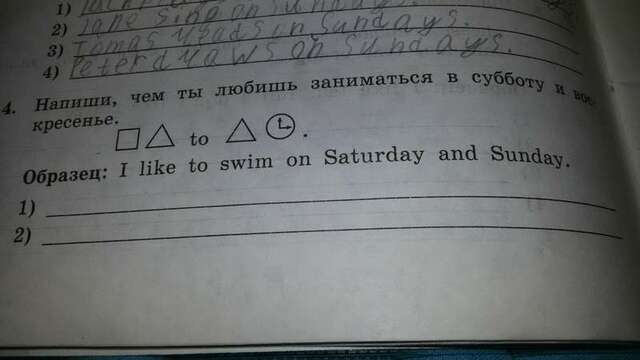 1)
2) Jane sing on Sundays.
3) Tomas reads on Sundays.
4) Peter draws on Sundays.
4. Напиши, чем ты любишь заниматься в субботу и вос-
кресенье.
to .
Образец: I like to swim on Saturday and Sunday.
1)
2)